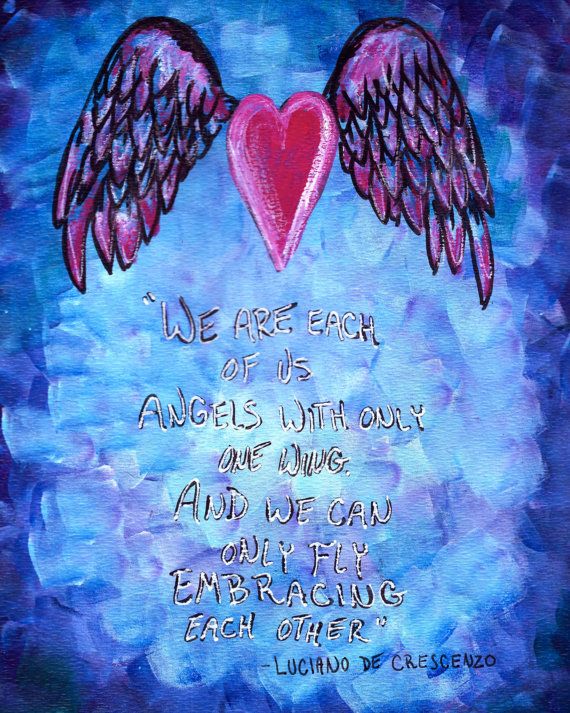 "WE ARE EACH
OF US
ANGELS WITH ONLY
ONE WING.
AND WE CAN
ONLY FLY
EMBRACING
EACH OTHER"
-LUCIANO DE CRESCENZO